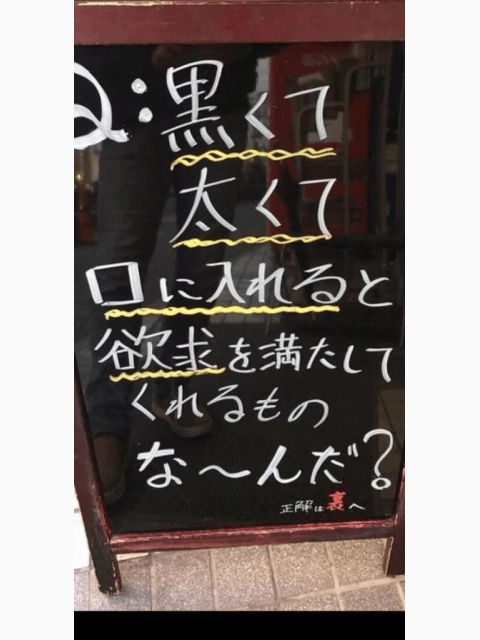 Q:黒くて
太くて
口に入れると
欲求を満たして
くれるもの
な〜んだ?
正解は裏へ